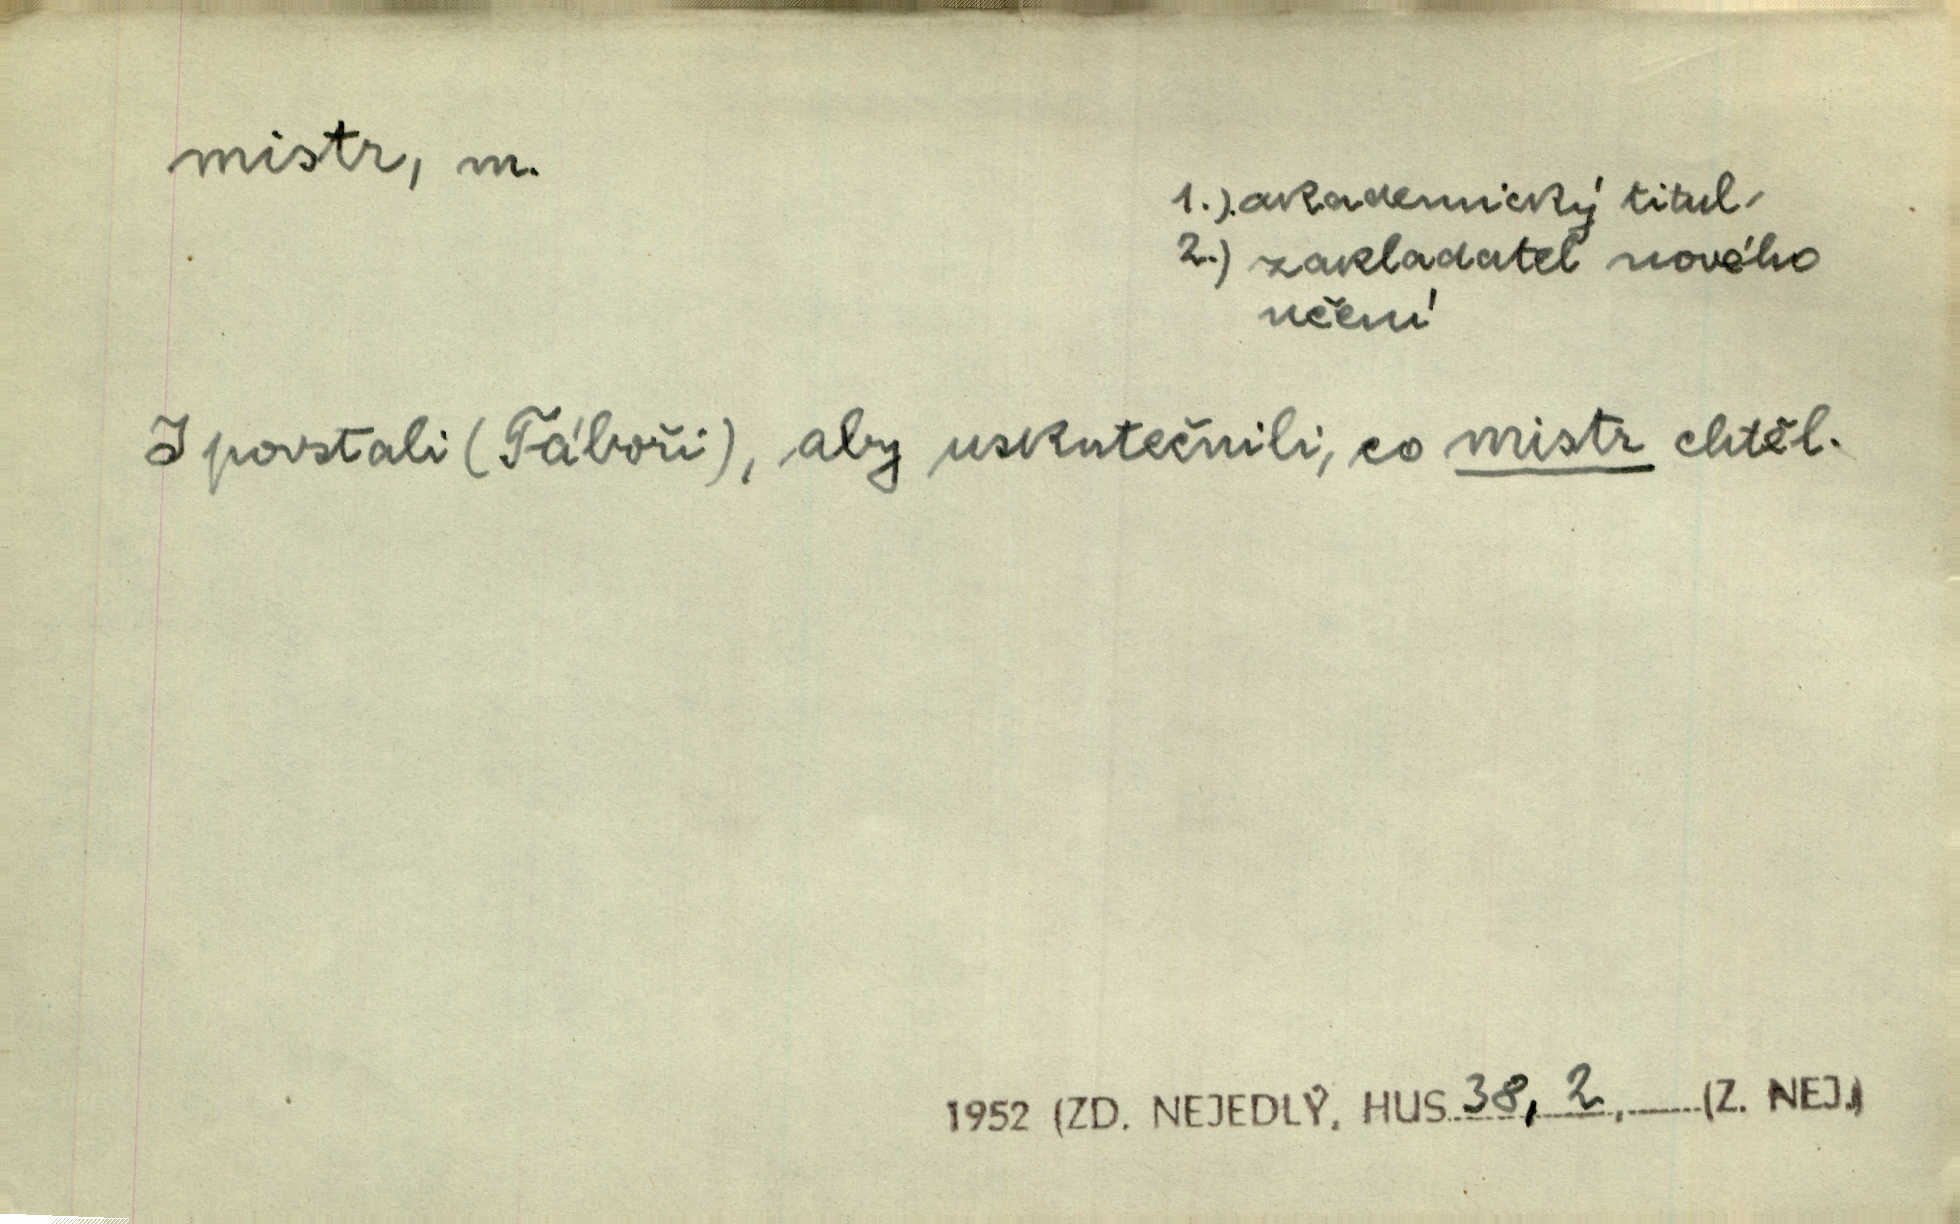 mistr, m.
1.) akademický titul
2.) zakladatel nového
učení
I povstali (Táboři), aby uskutečnili, co mistr chtěl.
1952 (ZD. NEJEDLÝ, HUS 38, 2, (Z. NEJ.)